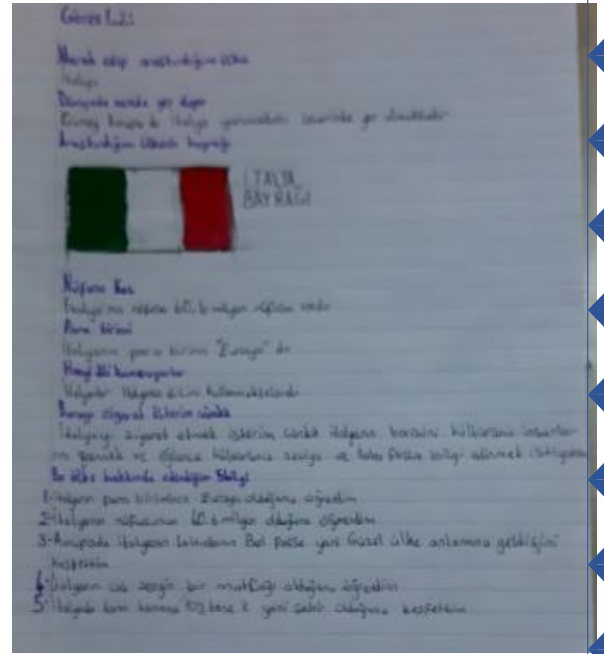 Görev 1.2:
Merak edip araştırdığım ülke
İtalya
Dünyada nerede yer alıyor
Güney Avrupa'da İtalya yarımadası üzerinde yer almaktadır
Araştırdığım ülkenin bayrağı
İTALYA
BAYRAĞI
Nüfusu Kaç
İtalya'nın nüfusu 60.6 milyon nüfusu vardır
Para birimi
İtalyanın para birimi "Euroyo" dr
Hangi dili konuşuyorlar
İtalyanlar İtalyanca dilini kullanmaktalardır
Burayı ziyaret isterim çünkü
İtalyayı ziyaret etmek isterim çünkü italyanın kültürünü insanların
ve ve daha fazla bilgi edinmek istiyorum
Bu ülke hakkında edindiğim 5 bilgi
1- İtalyanın para biriminin Euroyo olduğunu öğrendim
2- İtalyanın nüfusunun 60.6 milyon olduğunu öğrendim
3- Avrupada İtalyanın Bel Paese yani Güzel ülke anlamına geldiğini
keşfettim
4- İtalyanın çok zengin bir mutfağı olduğunu öğrendim
5- İtalyada yeni şehir olduğunu keşfettim